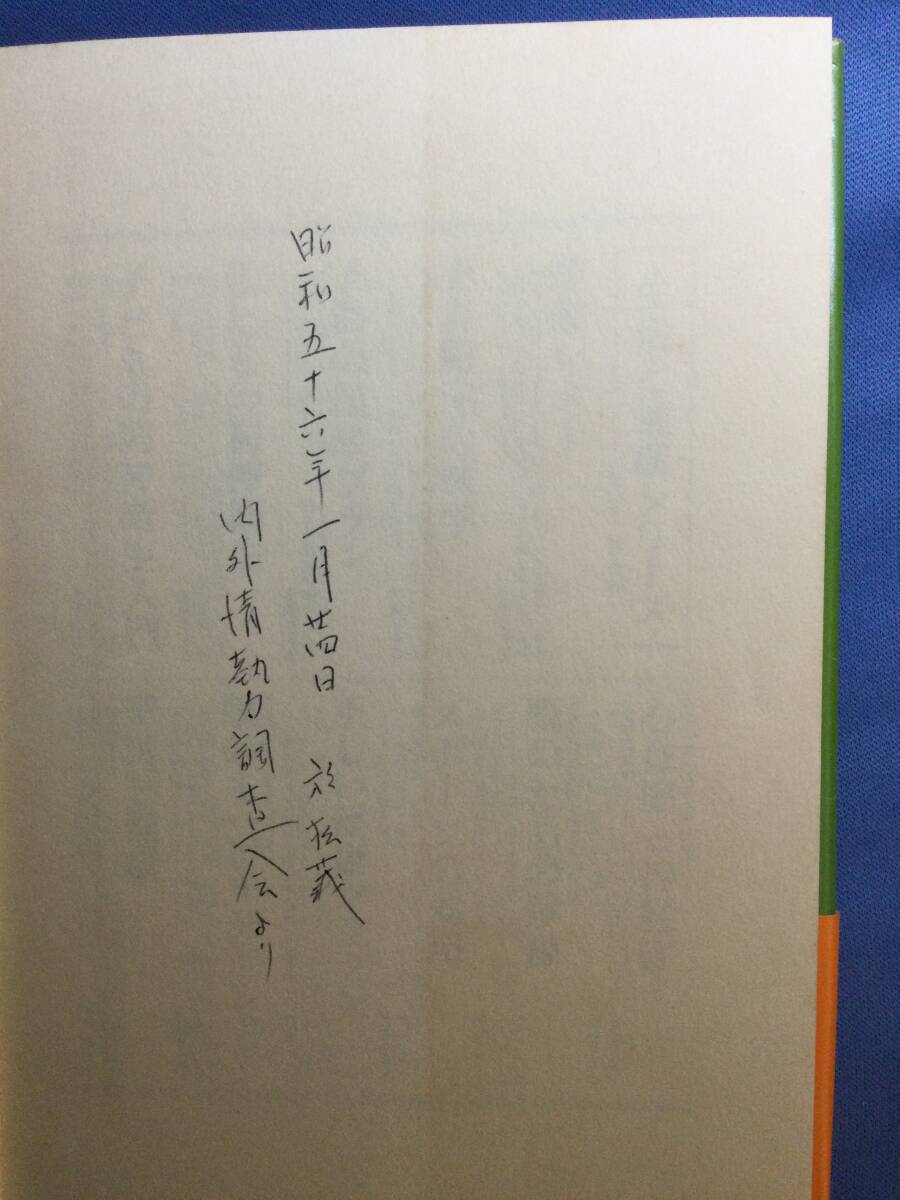 昭和五十六年一月廿四日 於松義
内外情勢調査会より